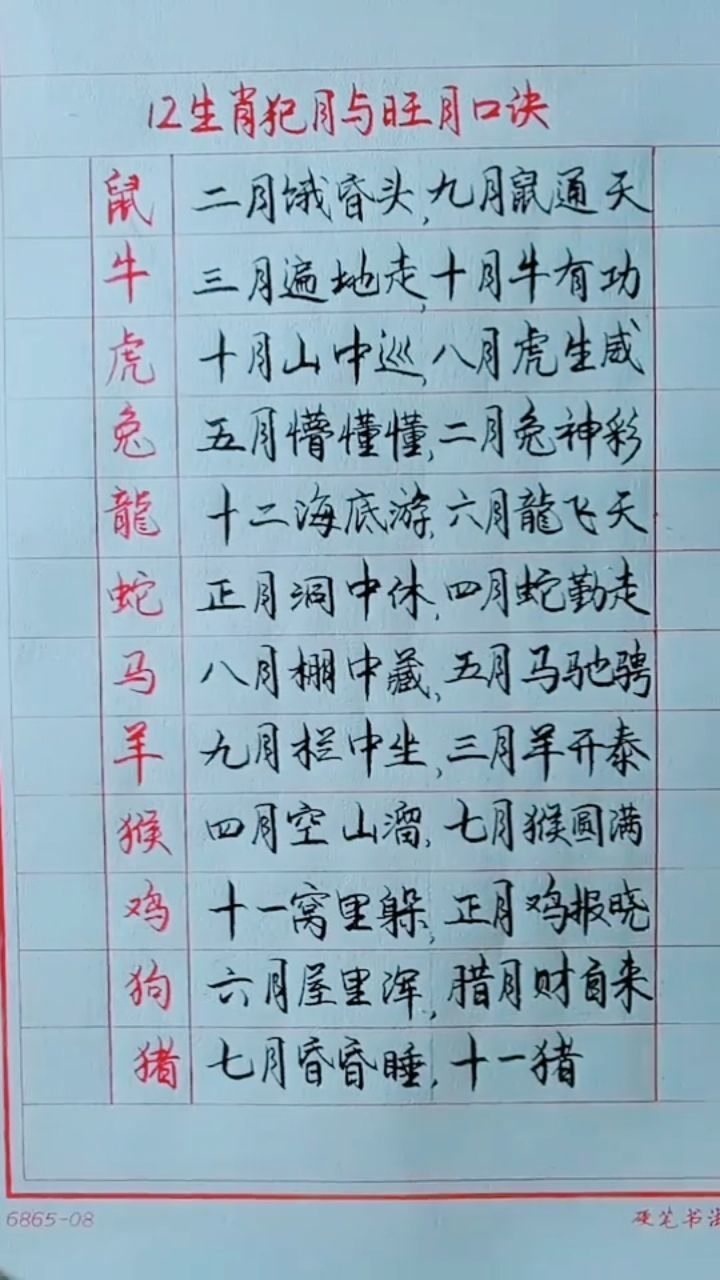 12生肖犯月与旺月口诀
鼠 二月饿昏头,九月鼠通天
牛 三月遍地走,十月牛有功
虎 十月山中巡,八月虎生威
兔 五月懵懂懂,二月兔神彩
龍 十二海底游,六月龍飞天
蛇 正月洞中休,四月蛇勤走
马 八月棚中藏,五月马驰骋
羊 九月栏中坐,三月羊开泰
猴 四月空山溜,七月猴圆满
鸡 十一窝里躲,正月鸡报晓
狗 六月屋里浑,腊月财自来
猪 七月昏昏睡,十一猪
6865-08 硬笔书法